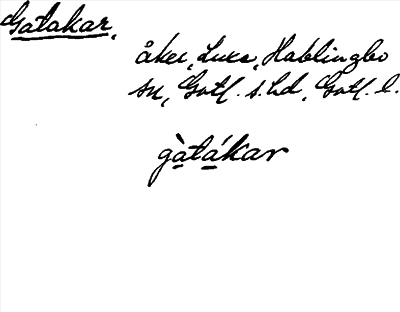 Gatakar,
åker, Luxe, Hablingbo
sn, Gotl. s. hd, Gotl. l.
gàtákar